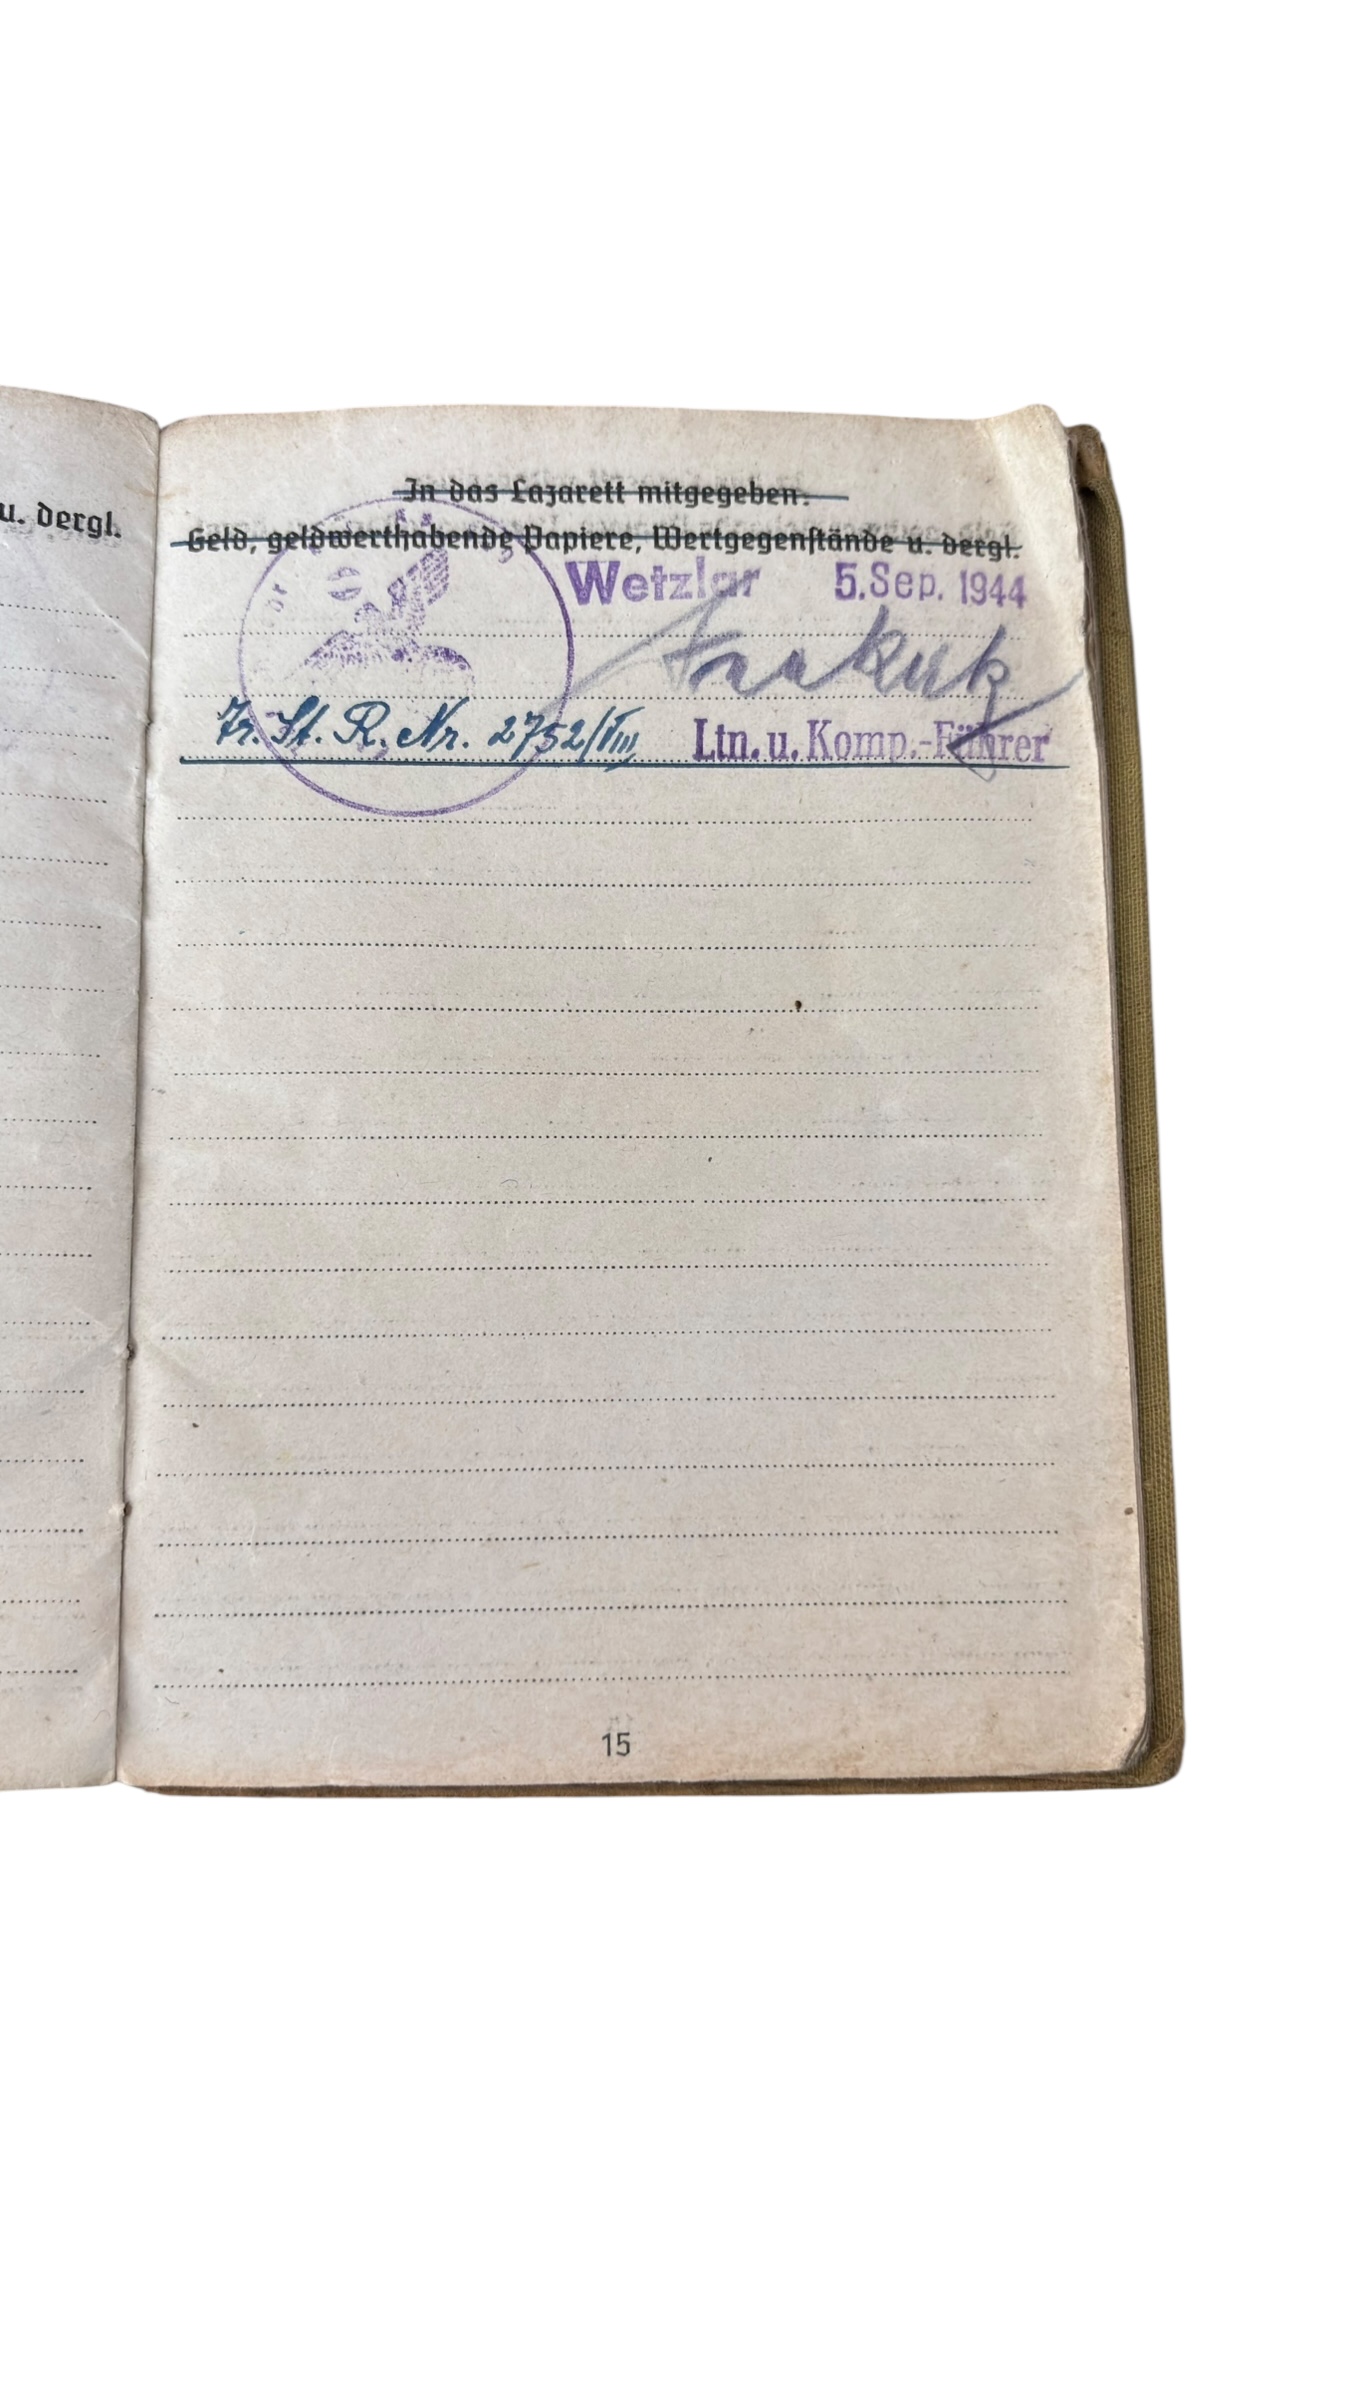 u. dergl.
In das Lazarett mitgegeben.
Geld, geldwerthabende Papiere, Wertgegenstände u. dergl.
Wetzlar 5. Sep. 1944
Tr. St. R. Nr. 2752/VIII Ltn. u. Komp.-Führer
15